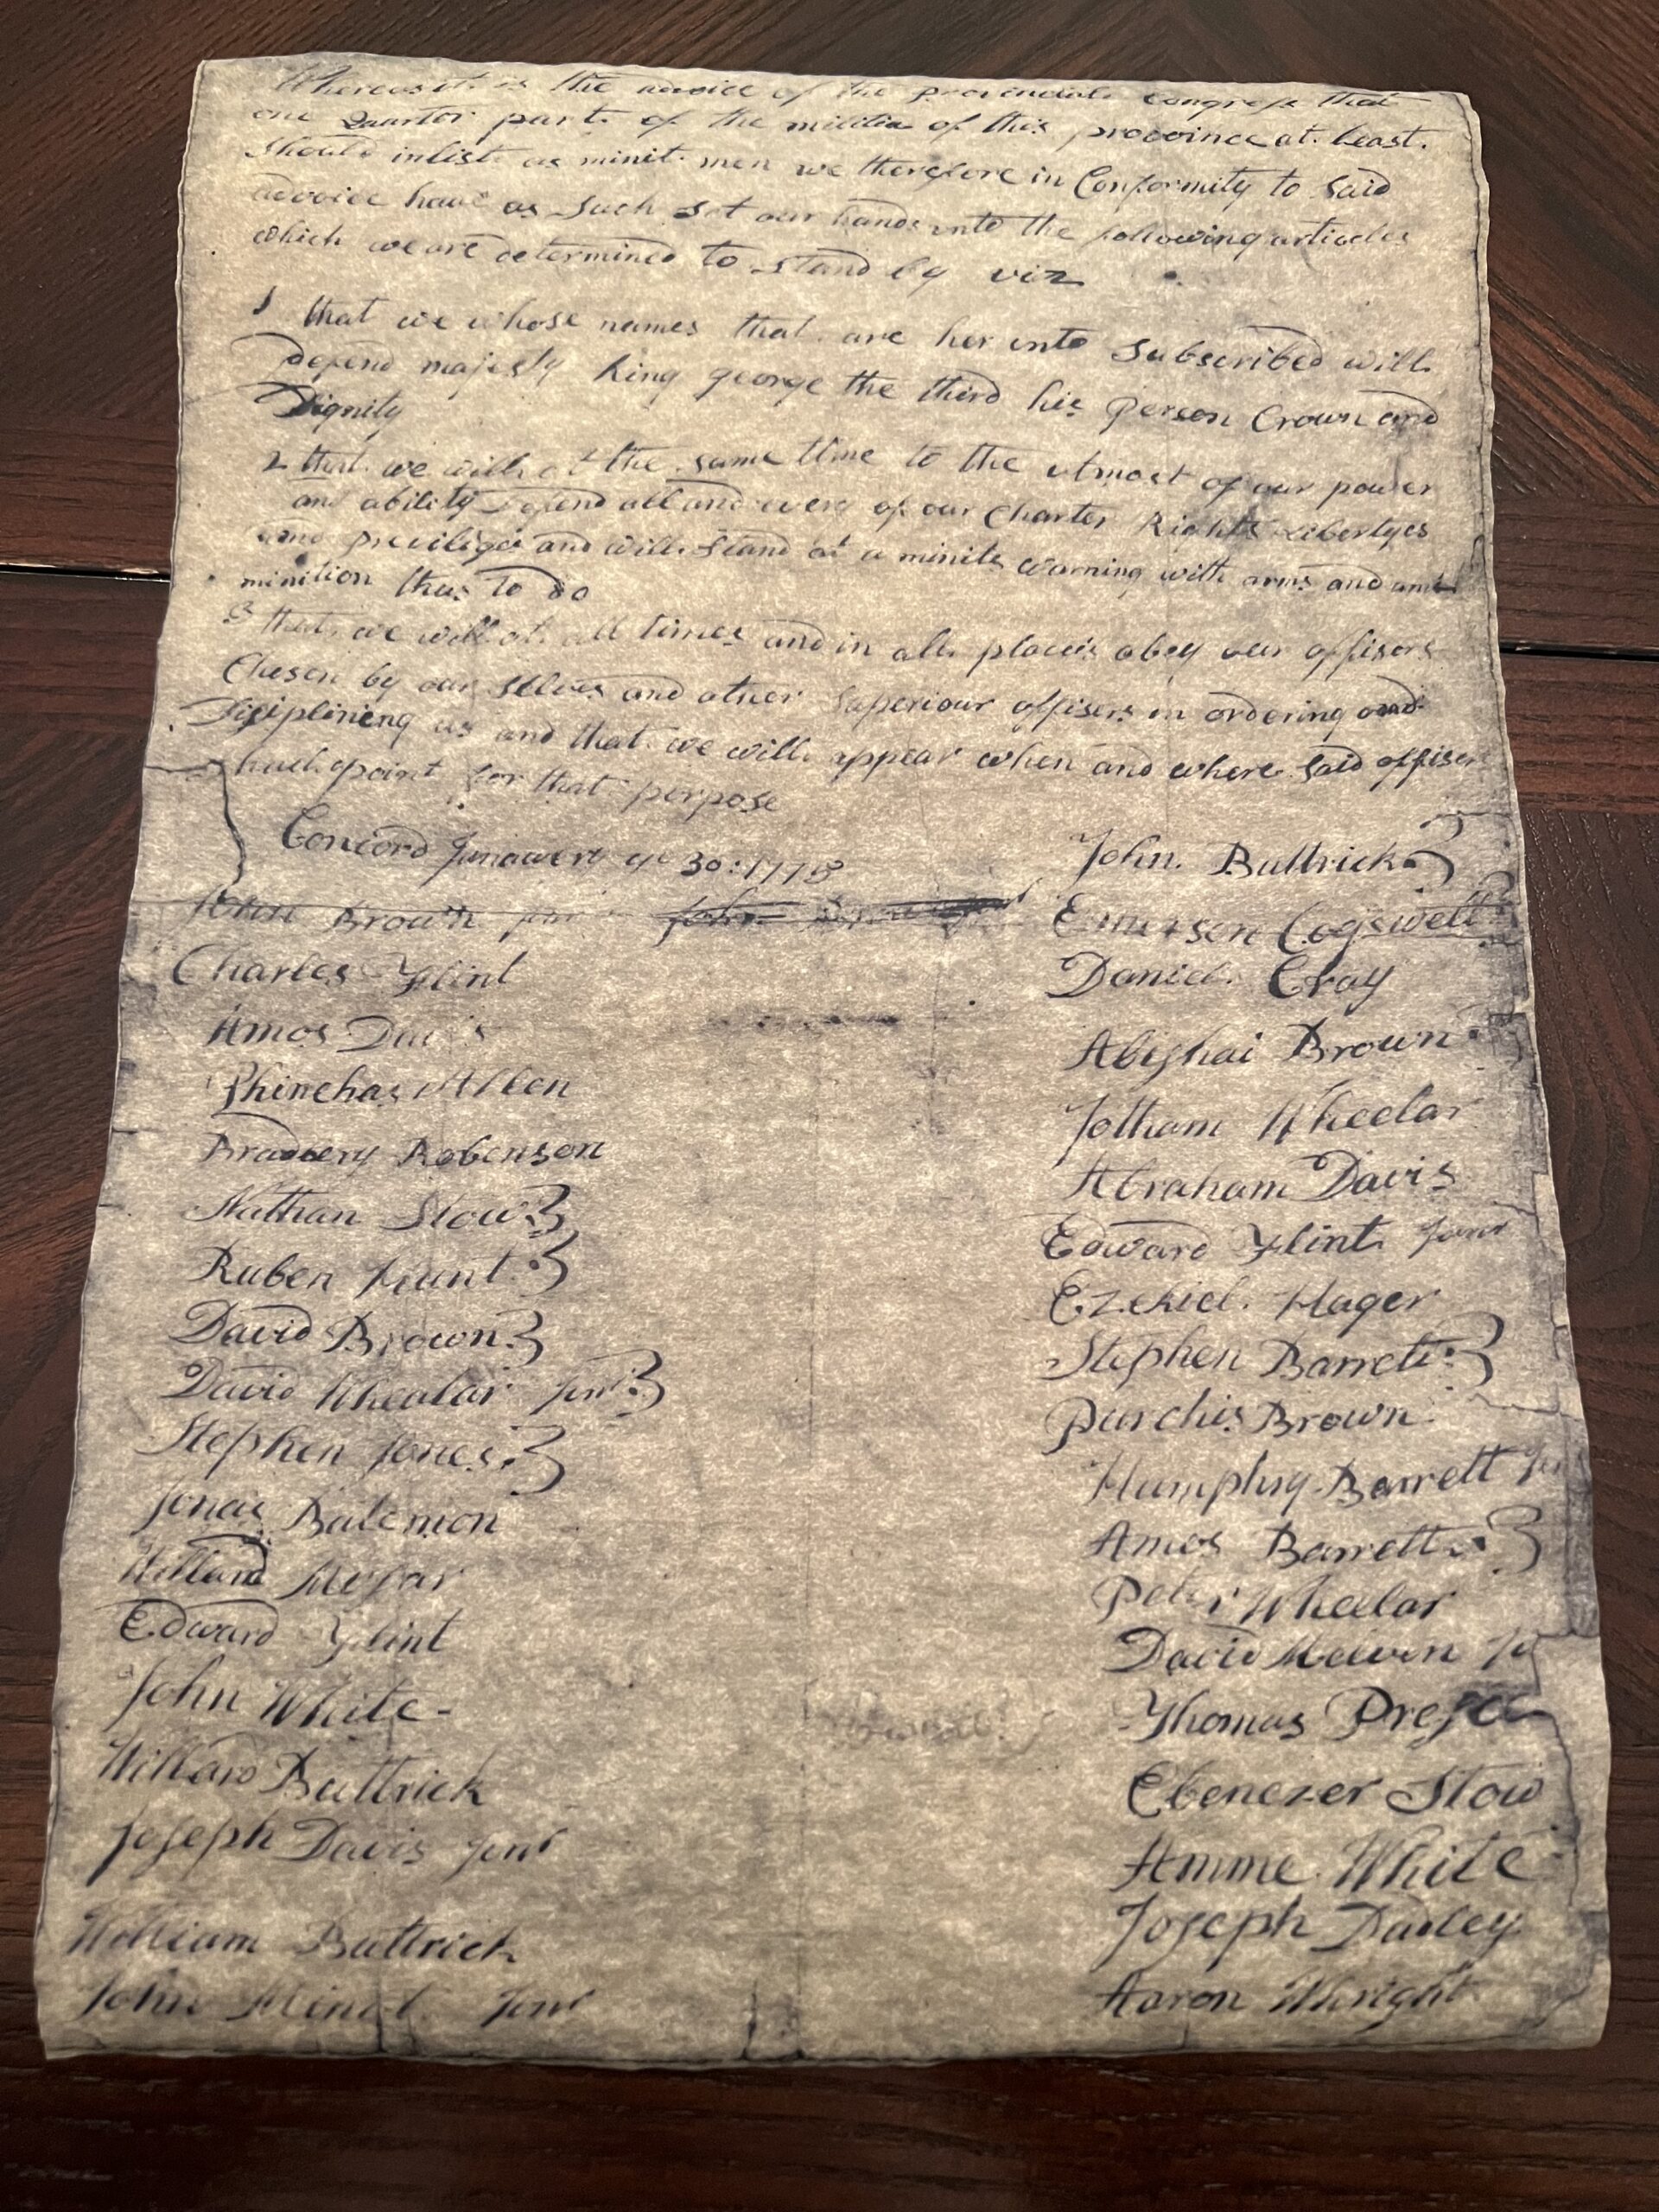 Whereas it is the advoice of the provencial Congress that
one Quarter part of the militia of this provoince at least
should inlist as minit men we therefore in Conformity to said
advoice have as such set our hands unto the following articles
which we are determined to stand by viz
1 that we whose names that are her unto Subscribed will
Defend majesty King george the third his person Crown and
Dignity
2 that we will at the same time to the utmost of our power
and ability Defend all and every of our Charter Rights Libertyes
and previliges and will stand at a minits warning with arms and am
minition thus to do
3 that we will at all times and in all places obey our offisers
Chesen by our selves and other Superiour offisers in ordering and
Disiplineng us and that we will appear when and where said offisers
shall point for that perpose
Concord Janawery ye 30:1775
John Buttrick
John Brown
Emerson Cogswell
Charles Flint
Daniel Cray
Amos Davis
Abishai Brown
Phinehas Allen
Jotham Wheelar
Bradbery Robenson
Abraham Davis
Nathan Stow
Edward Flint Junr
Ruben Hunt
Ezekiel Hager
David Brown
Stephen Barrett
David Whealar Junr
Purchis Brown
Stephen Jones
Humphry Barrett
Jonas Batemon
Amos Barrett
Willard
Peter Wheelar
Edward Flint
David Melvin
John White
Thomas
Willard Buttrick
Ebenezer Stow
Joseph Davis Junr
Amme White
William Buttrick
Joseph Dadley
John Flint Junr
Aaron Wright